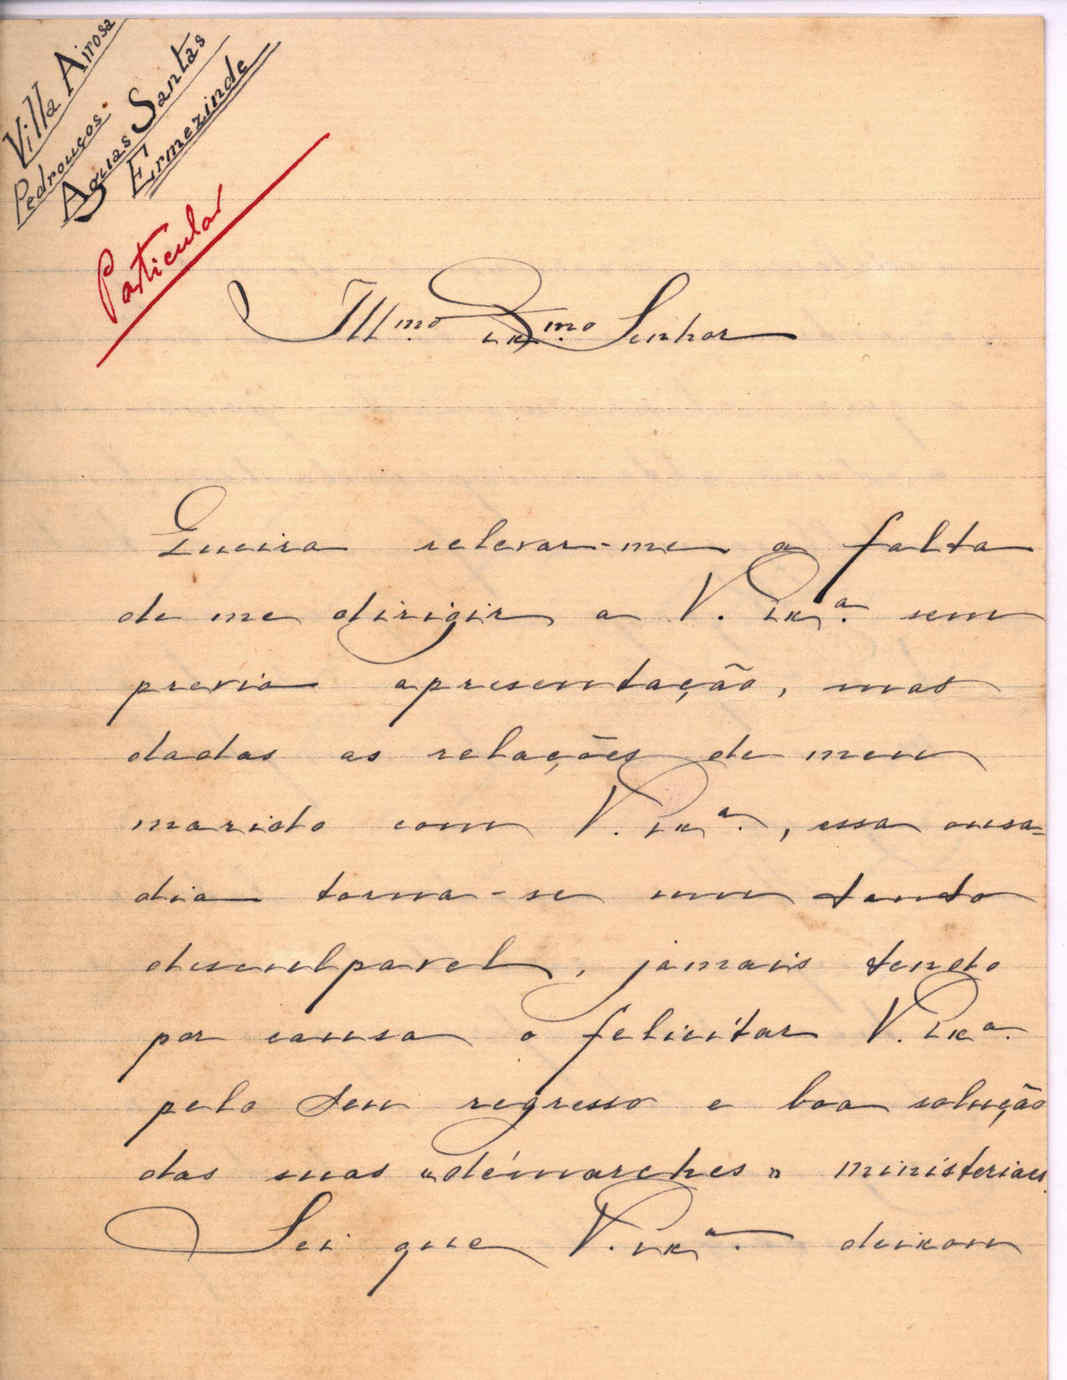 Villa Airosa
Pedrouços.
Aguas Santas
Ermezinde
Particular
Illmo. Exmo. Senhor
Queira relevar-me a falta
de me dirigir a V. Exa. sem
previa apresentação, mas
dadas as relações de meu
marido com V. Exa., essa ousa=
dia torna-se um tanto
desculpavel, jamais tendo
por causa o felicitar V. Exa.
pelo seu regresso e boa solução
das suas «démarches» ministeriaes.
Sei que V. Exa. deixou